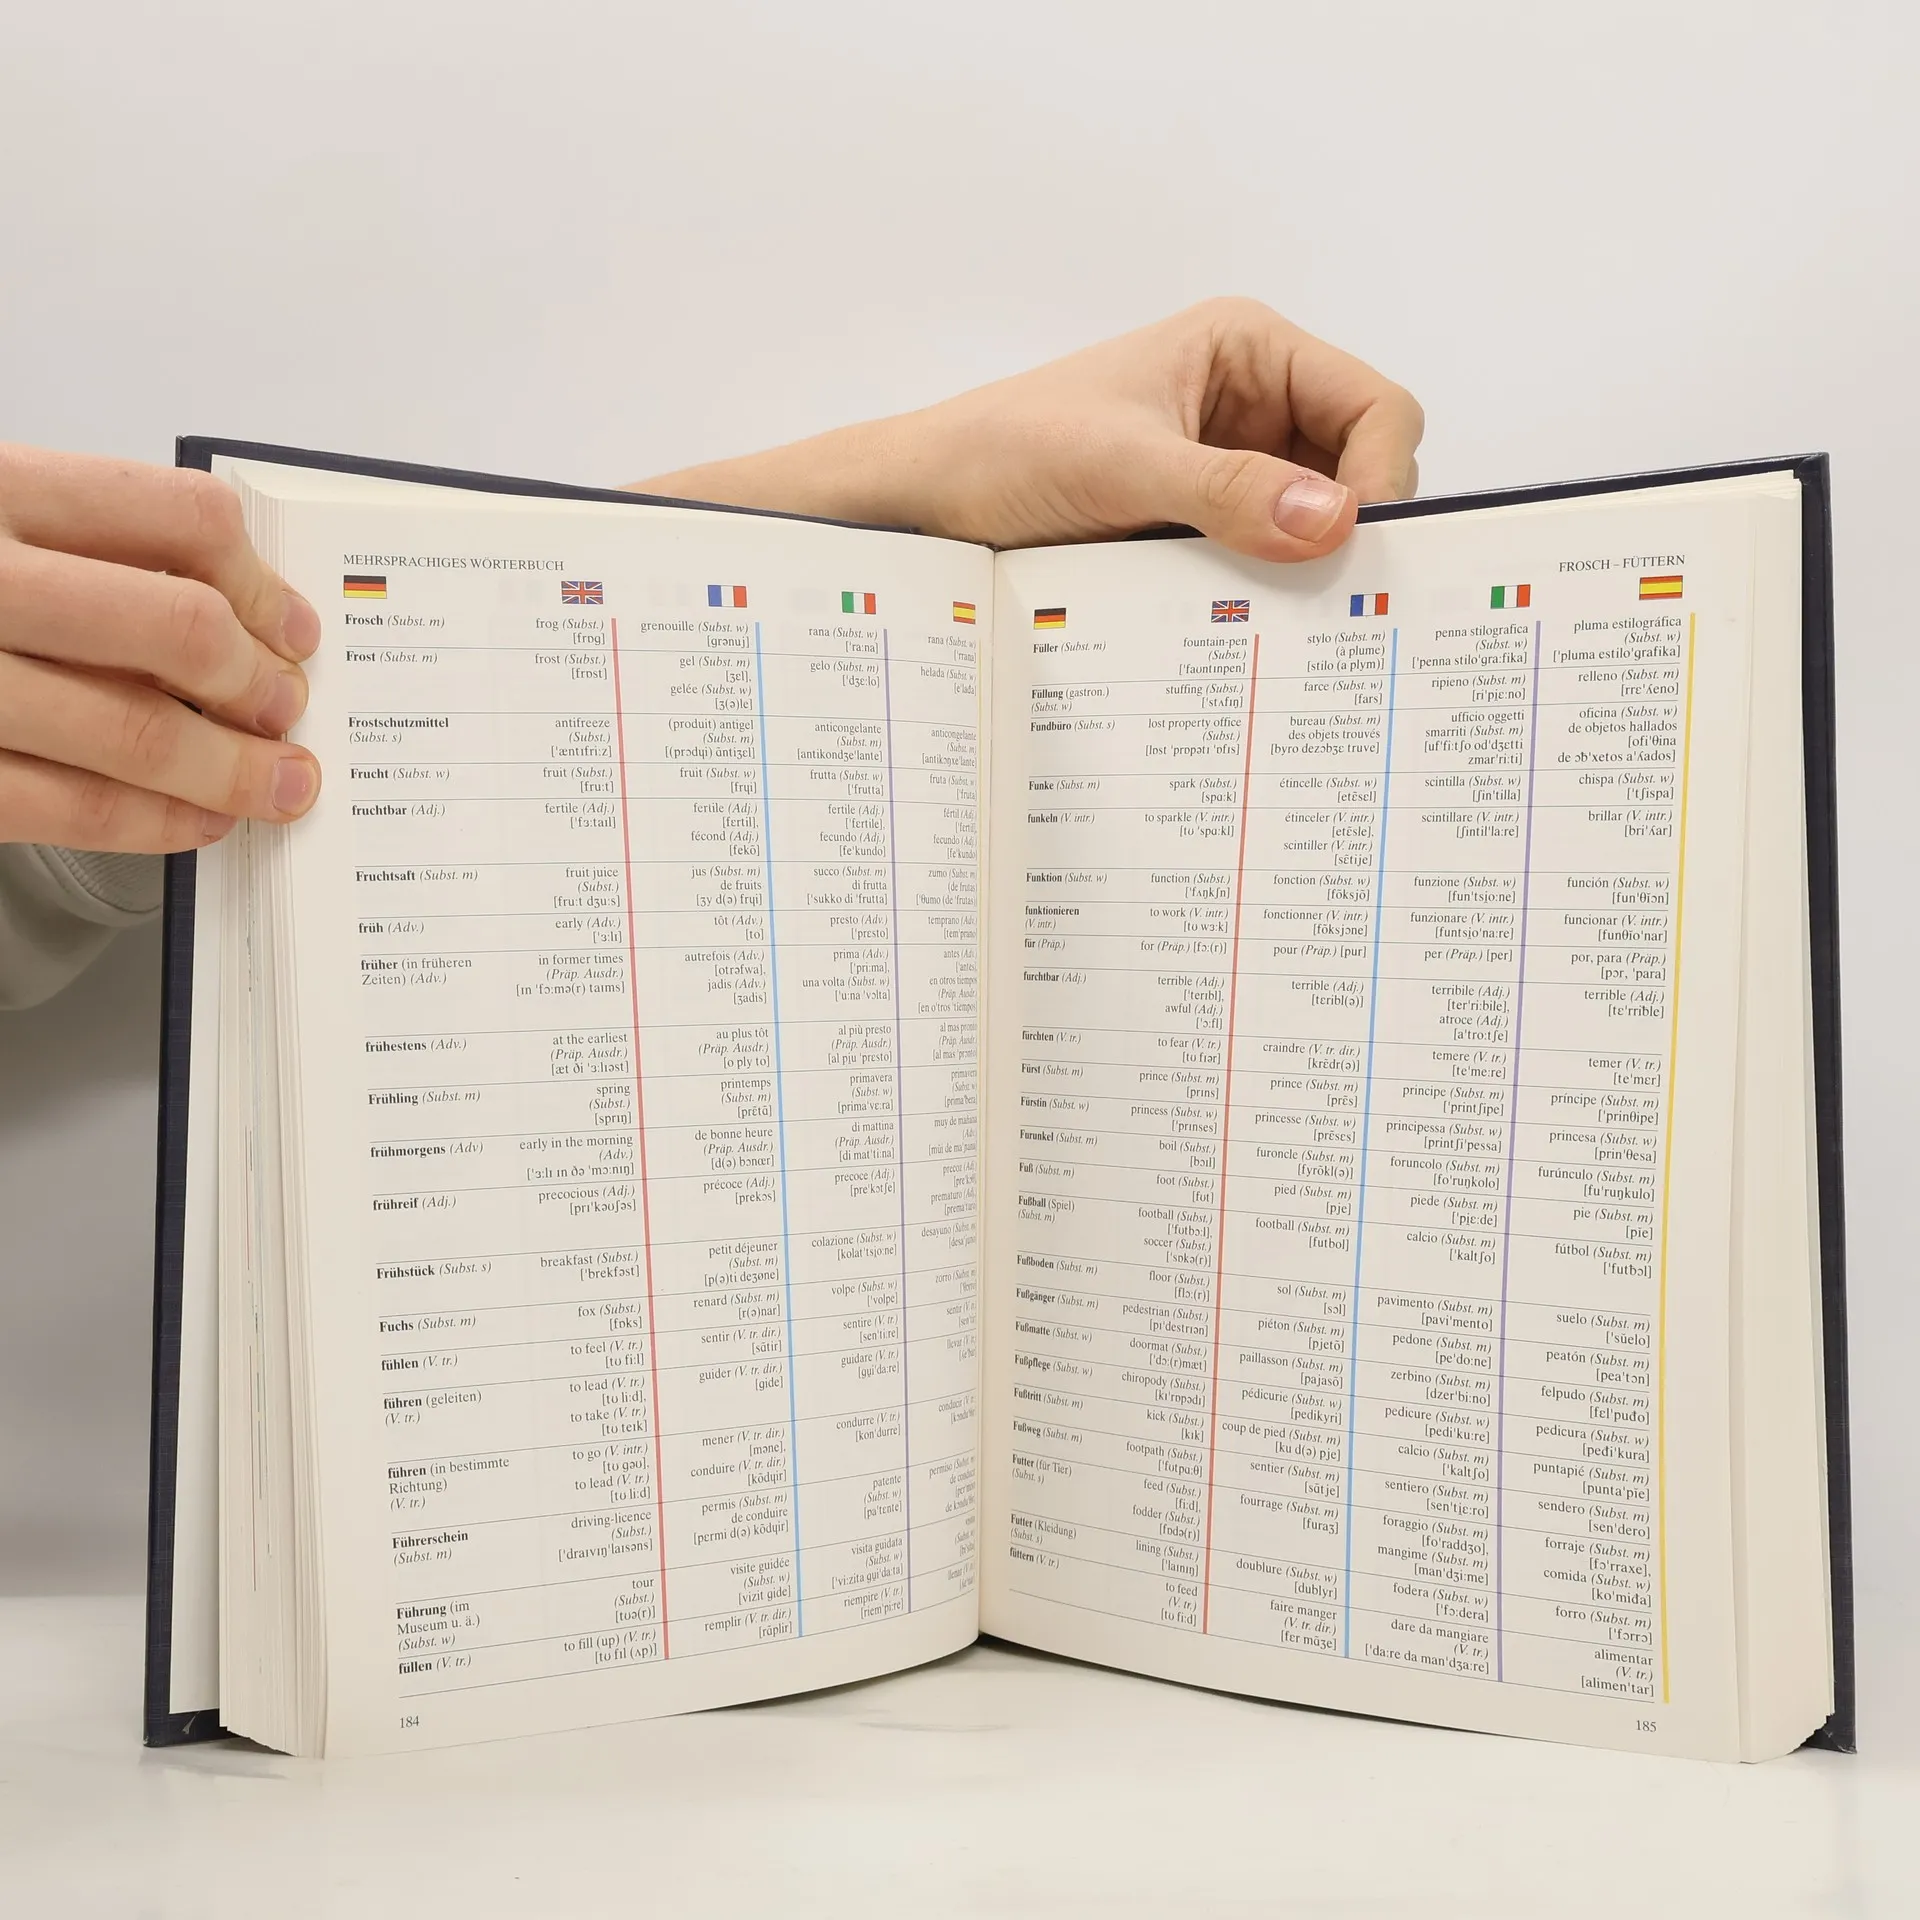 MEHRSPRACHIGES WÖRTERBUCH
Frosch (Subst. m)
frog (Subst.)
[frɒg]
grenouille (Subst. w)
[grənuj]
rana (Subst. w)
['ra:na]
rana (Subst. w)
['rrana]
Frost (Subst. m)
frost (Subst.)
[frɒst]
gel (Subst. m)
[ʒɛl],
gelée (Subst. w)
[ʒ(ə)le]
gelo (Subst. m)
['dʒɛ:lo]
helada (Subst. w)
[e'laða]
Frostschutzmittel
(Subst. s)
antifreeze
(Subst.)
['æntɪfri:z]
(produit) antigel
(Subst. m)
[(prɔdɥi) ãntiʒɛl]
anticongelante
(Subst. m)
[antikondʒe'lante]
anticongelante
(Subst. m)
[antikɔŋxe'lante]
Frucht (Subst. w)
fruit (Subst.)
[fru:t]
fruit (Subst. w)
[frɥi]
frutta (Subst. w)
['frutta]
fruta (Subst. w)
['fruta]
fruchtbar (Adj.)
fertile (Adj.)
['fɜ:taɪl]
fertile (Adj.)
[fɛrtil],
fécond (Adj.)
[fekõ]
fertile (Adj.)
['fɛrtile],
fecundo (Adj.)
[fe'kundo]
fértil (Adj.)
['fɛrtil],
fecundo (Adj.)
[fe'kundo]
Fruchtsaft (Subst. m)
fruit juice
(Subst.)
[fru:t dʒu:s]
jus (Subst. m)
de fruits
[ʒy d(ə) frɥi]
succo (Subst. m)
di frutta
['sukko di 'frutta]
zumo (Subst. m)
(de frutas)
['θumo (de 'frutas)]
früh (Adv.)
early (Adv.)
['ɜ:lɪ]
tôt (Adv.)
[to]
presto (Adv.)
['prɛsto]
temprano (Adv.)
[tem'prano]
früher (in früheren
Zeiten) (Adv.)
in former times
(Präp. Ausdr.)
[ɪn 'fɔ:mə(r) taɪms]
autrefois (Adv.)
[otrəfwa],
jadis (Adv.)
[ʒadis]
prima (Adv.)
['pri:ma],
una volta (Subst. w)
['u:na 'vɔlta]
antes (Adv.)
['antes],
en otros tiempos
(Präp. Ausdr.)
[en o'tros 'tiempos]
frühestens (Adv.)
at the earliest
(Präp. Ausdr.)
[æt ði 'ɜ:lɪəst]
au plus tôt
(Präp. Ausdr.)
[o ply to]
al più presto
(Präp. Ausdr.)
[al pju 'prɛsto]
al mas pronto
(Präp. Ausdr.)
[al mas 'prɔnto]
Frühling (Subst. m)
spring
(Subst.)
[sprɪŋ]
printemps
(Subst. m)
[prɛ̃tã]
primavera
(Subst. w)
[prima'vɛ:ra]
primavera
(Subst. w)
[prima'bera]
frühmorgens (Adv)
early in the morning
(Adv.)
['ɜ:lɪ ɪn ðə 'mɔ:nɪŋ]
de bonne heure
(Präp. Ausdr.)
[d(ə) bɔnœr]
di mattina
(Präp. Ausdr.)
[di mat'ti:na]
muy de mañana
(Adv.)
frühreif (Adj.)
precocious (Adj.)
[prɪ'kəʊʃəs]
précoce (Adj.)
[prekɔs]
precoce (Adj.)
[pre'kɔtʃe]
precoz (Adj.)
[pre'kɔθ],
prematuro (Adj.)
[prema'turo]
Frühstück (Subst. s)
breakfast (Subst.)
['brekfəst]
petit déjeuner
(Subst. m)
[p(ə)ti deʒøne]
colazione (Subst. w)
[kolat'tsjo:ne]
desayuno (Subst. m)
[desa'juno]
Fuchs (Subst. m)
fox (Subst.)
[fɒks]
renard (Subst. m)
[r(ə)nar]
volpe (Subst. w)
['volpe]
zorro (Subst. m)
fühlen (V. tr.)
to feel (V. tr.)
[tʊ fi:l]
sentir (V. tr. dir.)
[sãtir]
sentire (V. tr.)
[sen'ti:re]
sentir (V. tr.)
führen (geleiten)
(V. tr.)
to lead (V. tr.)
[tʊ li:d],
to take (V. tr.)
[tʊ teɪk]
guider (V. tr. dir.)
[gide]
guidare (V. tr.)
[gɥi'da:re]
llevar (V. tr.)
führen (in bestimmte
Richtung)
(V. tr.)
to go (V. intr.)
[tʊ gəʊ],
to lead (V. tr.)
[tʊ li:d]
mener (V. tr. dir.)
[məne],
conduire (V. tr. dir.)
[kõdɥir]
condurre (V. tr.)
[kon'durre]
conducir (V. tr.)
Führerschein
(Subst. m)
driving-licence
(Subst.)
['draɪvɪŋ'laɪsəns]
permis (Subst. m)
de conduire
[pɛrmi d(ə) kõdɥir]
patente
(Subst. w)
[pa'tente]
permiso (Subst. m)
de conducir
Führung (im
Museum u. ä.)
(Subst. w)
tour
(Subst.)
[tʊə(r)]
visite guidée
(Subst. w)
[vizit gide]
visita guidata
(Subst. w)
['vi:zita gɥi'da:ta]
füllen (V. tr.)
to fill (up) (V. tr.)
[tʊ fɪl (ʌp)]
remplir (V. tr. dir.)
[rãplir]
riempire (V. tr.)
[riem'pi:re]
184
FROSCH – FÜTTERN
Füller (Subst. m)
fountain-pen
(Subst.)
['faʊntɪnpen]
stylo (Subst. m)
(à plume)
[stilo (a plym)]
penna stilografica
(Subst. w)
['penna stilo'gra:fika]
pluma estilográfica
(Subst. w)
['pluma estilo'grafika]
Füllung (gastron.)
(Subst. w)
stuffing (Subst.)
['stʌfɪŋ]
farce (Subst. w)
[fars]
ripieno (Subst. m)
[ri'pjɛ:no]
relleno (Subst. m)
[rrɛ'ʎeno]
Fundbüro (Subst. s)
lost property office
(Subst.)
[lɒst 'prɒpətɪ 'ɒfɪs]
bureau (Subst. m)
des objets trouvés
[byro dezɔbʒɛ truve]
ufficio oggetti
smarriti (Subst. m)
[uf'fi:tʃo od'dʒɛtti
zmar'ri:ti]
oficina (Subst. w)
de objetos hallados
[ofi'θina
de ɔb'xetos a'ʎados]
Funke (Subst. m)
spark (Subst.)
[spɑ:k]
étincelle (Subst. w)
[etɛ̃sɛl]
scintilla (Subst. w)
[ʃin'tilla]
chispa (Subst. w)
['tʃispa]
funkeln (V. intr.)
to sparkle (V. intr.)
[tʊ 'spɑ:kl]
étinceler (V. intr.)
[etɛ̃sle],
scintiller (V. intr.)
[sɛ̃tije]
scintillare (V. intr.)
[ʃintil'la:re]
brillar (V. intr.)
[bri'ʎar]
Funktion (Subst. w)
function (Subst.)
['fʌŋkʃn]
fonction (Subst. w)
[fõksjõ]
funzione (Subst. w)
[fun'tsjo:ne]
función (Subst. w)
[fun'θiɔn]
funktionieren
(V. intr.)
to work (V. intr.)
[tʊ wɜ:k]
fonctionner (V. intr.)
[fõksjɔne]
funzionare (V. intr.)
[funtsjo'na:re]
funcionar (V. intr.)
[funθio'nar]
für (Präp.)
for (Präp.) [fɔ:(r)]
pour (Präp.) [pur]
per (Präp.) [per]
por, para (Präp.)
[pɔr, 'para]
furchtbar (Adj.)
terrible (Adj.)
['terɪbl],
awful (Adj.)
['ɔ:fl]
terrible (Adj.)
[tɛribl(ə)]
terribile (Adj.)
[ter'ri:bile],
atroce (Adj.)
[a'tro:tʃe]
terrible (Adj.)
[tɛ'rrible]
fürchten (V. tr.)
to fear (V. tr.)
[tʊ fɪər]
craindre (V. tr. dir.)
[krɛ̃dr(ə)]
temere (V. tr.)
[te'me:re]
temer (V. tr.)
[te'mɛr]
Fürst (Subst. m)
prince (Subst. m)
[prɪns]
prince (Subst. m)
[prɛ̃s]
principe (Subst. m)
['printʃipe]
príncipe (Subst. m)
['prinθipe]
Fürstin (Subst. w)
princess (Subst. w)
['prɪnses]
princesse (Subst. w)
[prɛ̃sɛs]
principessa (Subst. w)
[printʃi'pessa]
princesa (Subst. w)
[prin'θesa]
Furunkel (Subst. m)
boil (Subst.)
[bɔɪl]
furoncle (Subst. m)
[fyrõkl(ə)]
foruncolo (Subst. m)
[fo'ruŋkolo]
furúnculo (Subst. m)
[fu'ruŋkulo]
Fuß (Subst. m)
foot (Subst.)
[fʊt]
pied (Subst. m)
[pje]
piede (Subst. m)
['pjɛ:de]
pie (Subst. m)
[pie]
Fußball (Spiel)
(Subst. m)
football (Subst.)
['fʊtbɔ:l],
soccer (Subst.)
['sɒkə(r)]
football (Subst. m)
[futbol]
calcio (Subst. m)
['kaltʃo]
fútbol (Subst. m)
['futbɔl]
Fußboden (Subst. m)
floor (Subst.)
[flɔ:(r)]
sol (Subst. m)
[sɔl]
pavimento (Subst. m)
[pavi'mento]
suelo (Subst. m)
['suelo]
Fußgänger (Subst. m)
pedestrian (Subst.)
[pɪ'destrɪən]
piéton (Subst. m)
[pjetõ]
pedone (Subst. m)
[pe'do:ne]
peatón (Subst. m)
[pea'tɔn]
Fußmatte (Subst. w)
doormat (Subst.)
['dɔ:(r)mæt]
paillasson (Subst. m)
[pajasõ]
zerbino (Subst. m)
[dzer'bi:no]
felpudo (Subst. m)
[fɛl'puðo]
Fußpflege (Subst. w)
chiropody (Subst.)
[kɪ'rɒpədɪ]
pédicurie (Subst. w)
[pedikyri]
pedicure (Subst. w)
[pedi'ku:re]
pedicura (Subst. w)
[peði'kura]
Fußtritt (Subst. m)
kick (Subst.)
[kɪk]
coup de pied (Subst. m)
[ku d(ə) pje]
calcio (Subst. m)
['kaltʃo]
puntapié (Subst. m)
[punta'pie]
Fußweg (Subst. m)
footpath (Subst.)
['fʊtpɑ:θ]
sentier (Subst. m)
[sãtje]
sentiero (Subst. m)
[sen'tjɛ:ro]
sendero (Subst. m)
[sen'dero]
Futter (für Tier)
(Subst. s)
feed (Subst.)
[fi:d],
fodder (Subst.)
[fɒdə(r)]
fourrage (Subst. m)
[furaʒ]
foraggio (Subst. m)
[fo'raddʒo],
mangime (Subst. m)
[man'dʒi:me]
forraje (Subst. m)
[fɔ'rraxe],
comida (Subst. w)
[ko'miða]
Futter (Kleidung)
(Subst. s)
lining (Subst.)
['laɪnɪŋ]
doublure (Subst. w)
[dublyr]
fodera (Subst. w)
['fɔ:dera]
forro (Subst. m)
['fɔrrɔ]
füttern (V. tr.)
to feed
(V. tr.)
[tʊ fi:d]
faire manger
(V. tr. dir.)
[fɛr mãʒe]
dare da mangiare
(V. tr.)
['da:re da man'dʒa:re]
alimentar
(V. tr.)
[alimen'tar]
185